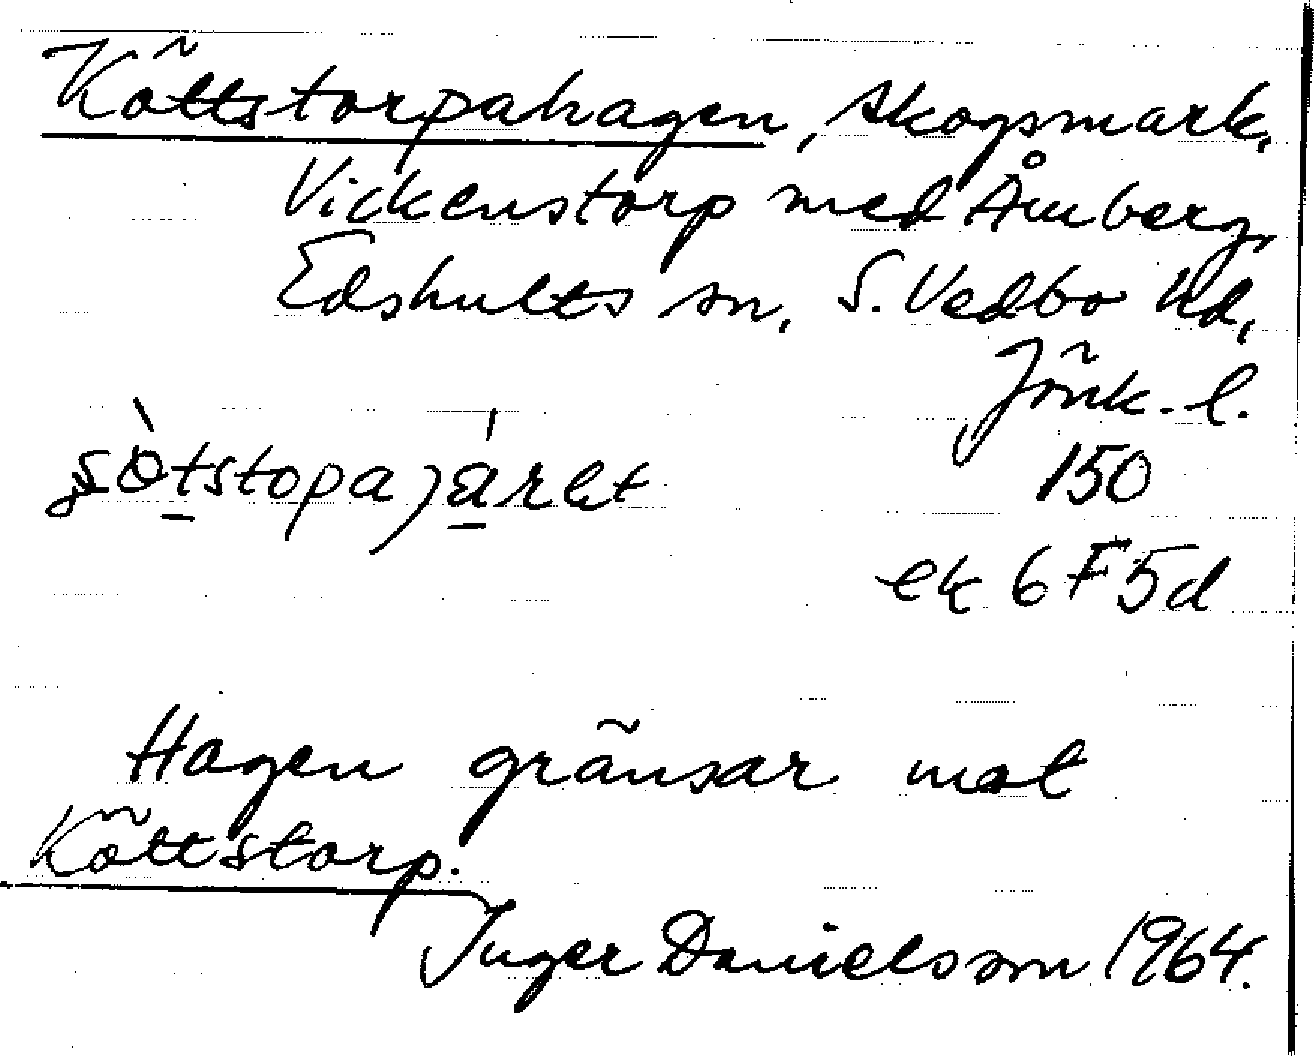 Köttstorpahagen, skogsmark,
Vickenstorp med Åmberg,
Edshults sn, S. Vedbo hd,
Jönk. l.
150
ek 6 F 5d
Hagen gränsar mot
Köttstorp.
Inger Danielsson 1964.